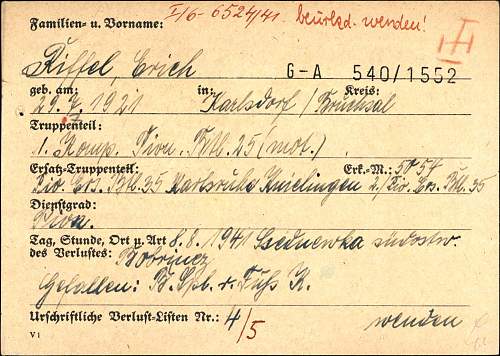 Familien- u. Vorname: I/6-6524/41. beurkd. wenden!
Riffel, Erich
G-A 540/1552
geb. am: in: Kreis:
29. 7. 1921 Karlsdorf / Bruchsal
Truppenteil:
1. Komp. Pion. Btl. 25 (mot.)
Ersatz-Truppenteil: Erk.-M.: 50 54
Pio. Ers. Btl. 35 Karlsruhe Knielingen 2./Pio. Ers. Btl. 35
Dienstgrad:
Pion.
Tag, Stunde, Ort u. Art 8. 8. 1941 südostw.
des Verlustes: Bobrinez
Gefallen: B. Spl. r. Fuß K.
Urschriftliche Verlust-Listen Nr.: 4/5 wenden
V1